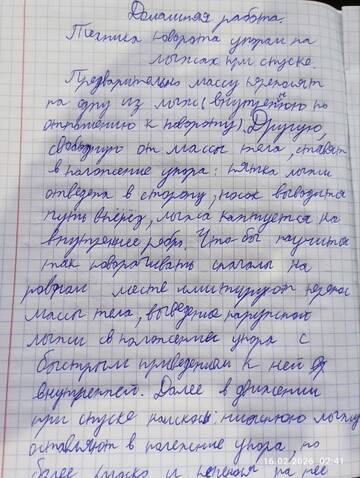 Домашняя работа.
Техника поворота упором на
лыжах при спуске.
Предварительно массу переносят
на одну из лыж (внутреннюю по
отношению к повороту). Другую,
свободную от массы тела, ставят
в положение упора: пятка лыжи
отведена в сторону, носок выводится
чуть вперёд, лыжа кантуется на
внутреннее ребро. Что бы научится
так поворачивать сначалы на
ровном месте имитируют перенос
массы тела, выведение наружной
лыжи в положение упора с
быстрым приведением к ней
внутренней. Далее в движении
при спуске наискось: нижнюю лыжу
оставляют в положение упора, но
более и перенося на нее
16.02.2026 02:41